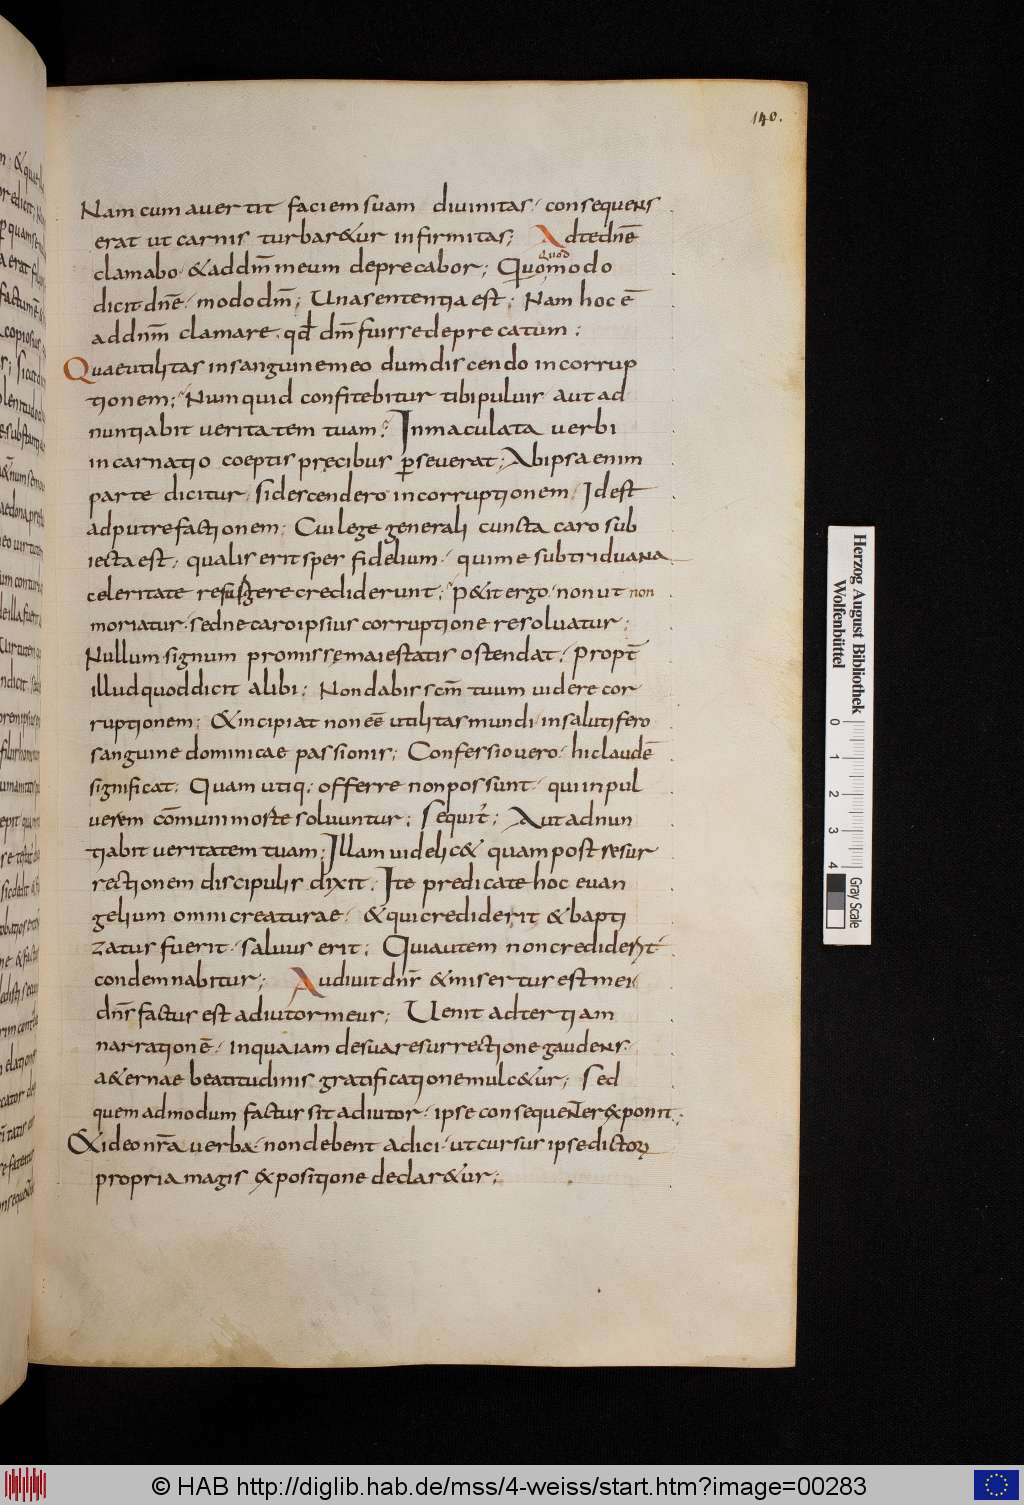 140.
Nam cum avertit faciem suam divinitas· consequens
erat ut carnis turbar&ur infirmitas; Ad te dnē
clamabo· & ad dm̄ meum deprecabor; Quomodo
quod
dicit dnē· modo dm̄; Una sententia est; Nam hoc ē
ad dnm̄ clamare· qđ dm̄ fuisse deprecatum;
Quae utilitas in sanguine meo dum discendo in corrup
tionem; Numquid confitebitur tibi pulvis· aut ad
nuntiabit veritatem tuam? Inmaculata verbi
incarnatio coeptis pręcibus p̱severat; Ab ipsa enim
parte dicitur· si descendero in corruptionem· Id est
ad putrefactionem; Cui lege generali cuncta caro sub
iecta est; qualis erit spes fidelium· qui me subtriduana
celeritate resurgere crediderunt; P&it ergo· non ut non
moriatur· sed ne caro ipsius corruptione resolvatur;
Nullum signum promissę maiestatis ostendat; Propt̄
illud quod dicit alibi; Non dabis scm̄ tuum videre cor
ruptionem; & incipiat non eē utilitas mundi· in salutifero
sanguine dominicae passionis; Confessio vero· hic laudē
significat; Quam utiq; offerre non possunt· qui in pul
verem cōmuni morte solvuntur; Sequit̄; Aut adnun
tiabit veritatem tuam; Illam videlic& quam post resur
rectionem discipulis dixit; Ite predicate hoc evan
gelium omni creaturae· & qui crediderit & bapti
zatus fuerit· salvus erit; Qui autem non crediderit
condemnabitur; Audivit dns̄ & misertus est mei·
dns̄ factus est adiutor meus; Uenit ad tertiam
narrationē· in qua iam de sua resurrectione gaudens·
a&ernae beatitudinis gratificatione mulc&ur; Sed
quemadmodum factus sit adiutor· ipse consequenter exponit;
& ideo nr̄a verba· non debent adici· ut cursus ipse dictoꝝ
propria magis expositione declar&ur;
Herzog August Bibliothek
Wolfenbüttel
0 1 2 3 4
Gray Scale
© HAB http://diglib.hab.de/mss/4-weiss/start.htm?image=00283